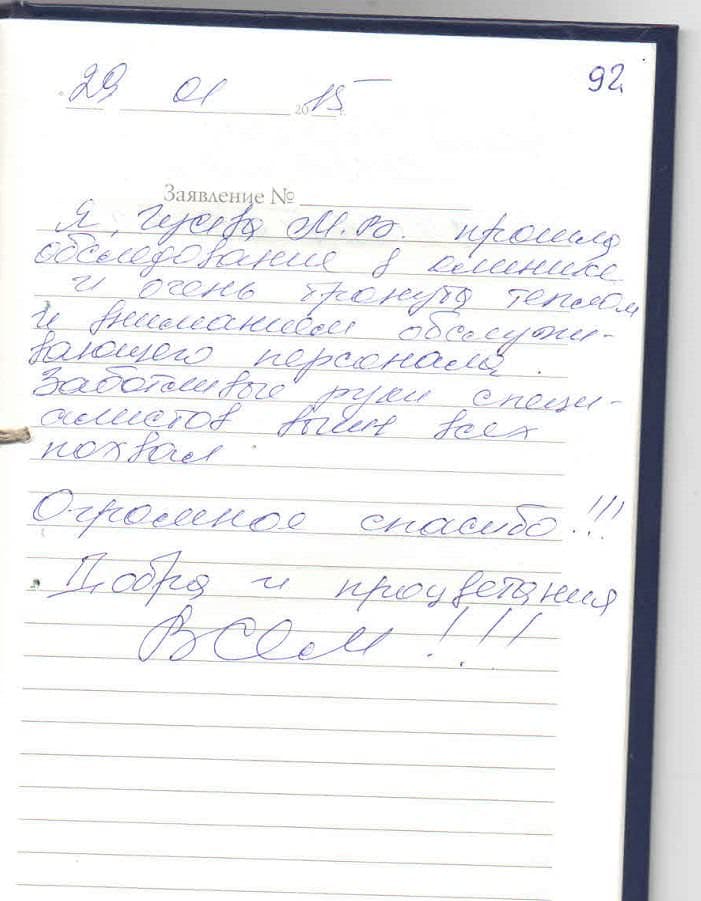 92
29 01 2015 г.
Заявление №
Я, Гусева М.В. прошла
обследование в клинике
и очень тронута теплом
и вниманием обслужи-
вающего персонала.
Заботливые руки специ-
алистов выше всех
похвал.
Огромное спасибо!!!
Добра и процветания
ВСЕМ!!!